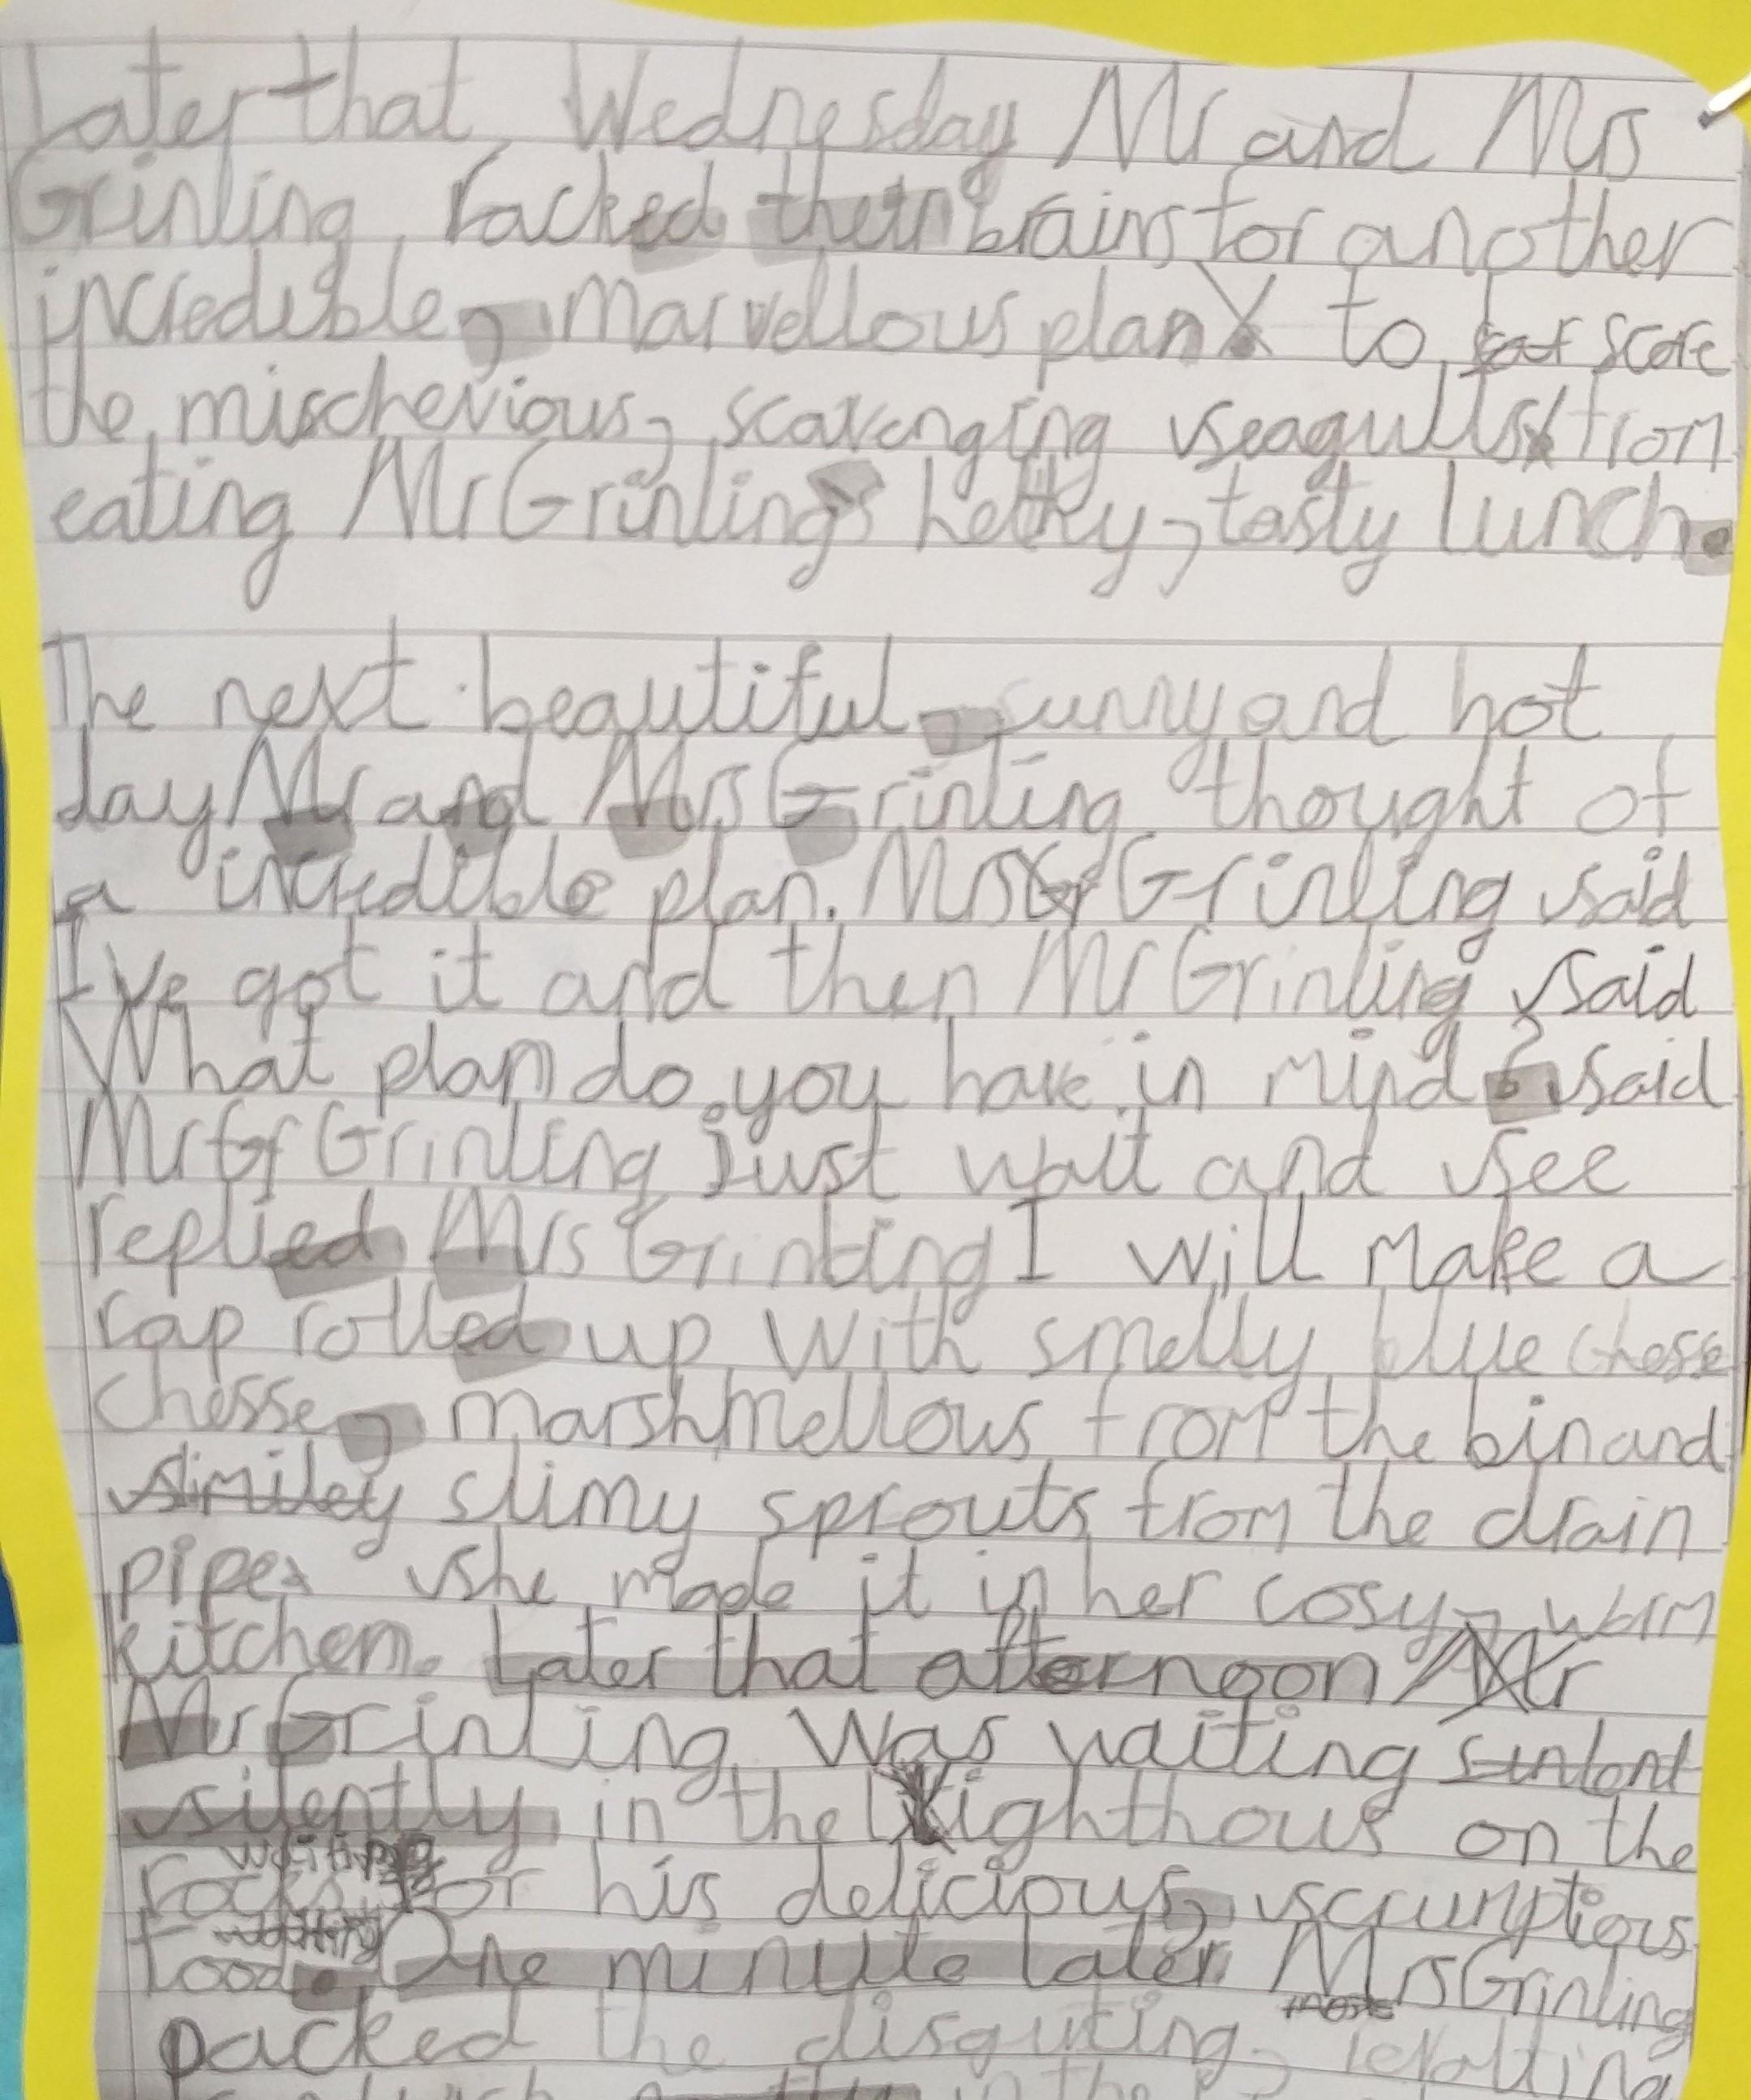 Later that Wednesday Mr and Mrs
Grinling racked their brains for another
incredible, marvellous plan to scare
the mischevious, scavenging seagulls from
eating Mr Grinling's heltky, tasty lunch.
The next beautiful, sunny and hot
day Mr and Mrs Grinling thought of
a incredible plan. Mrs Grinling said
I've got it and then Mr Grinling said
What plan do you have in mind? said
Mr Grinling Just wait and see
replied Mrs Grinling I will make a
rap rolled up with smelly blue chesse
chesse, marshmellows from the bin and
slimy sprouts from the drain
pipe. she made it in her cosy, warm
kitchen. Later that afternoon
Mr Grinling was waiting
silently in the lighthous on the
rocks waiting for his delicious, scrumptious
food. One minute later Mrs Grinling
packed the disguting, revolting
in the